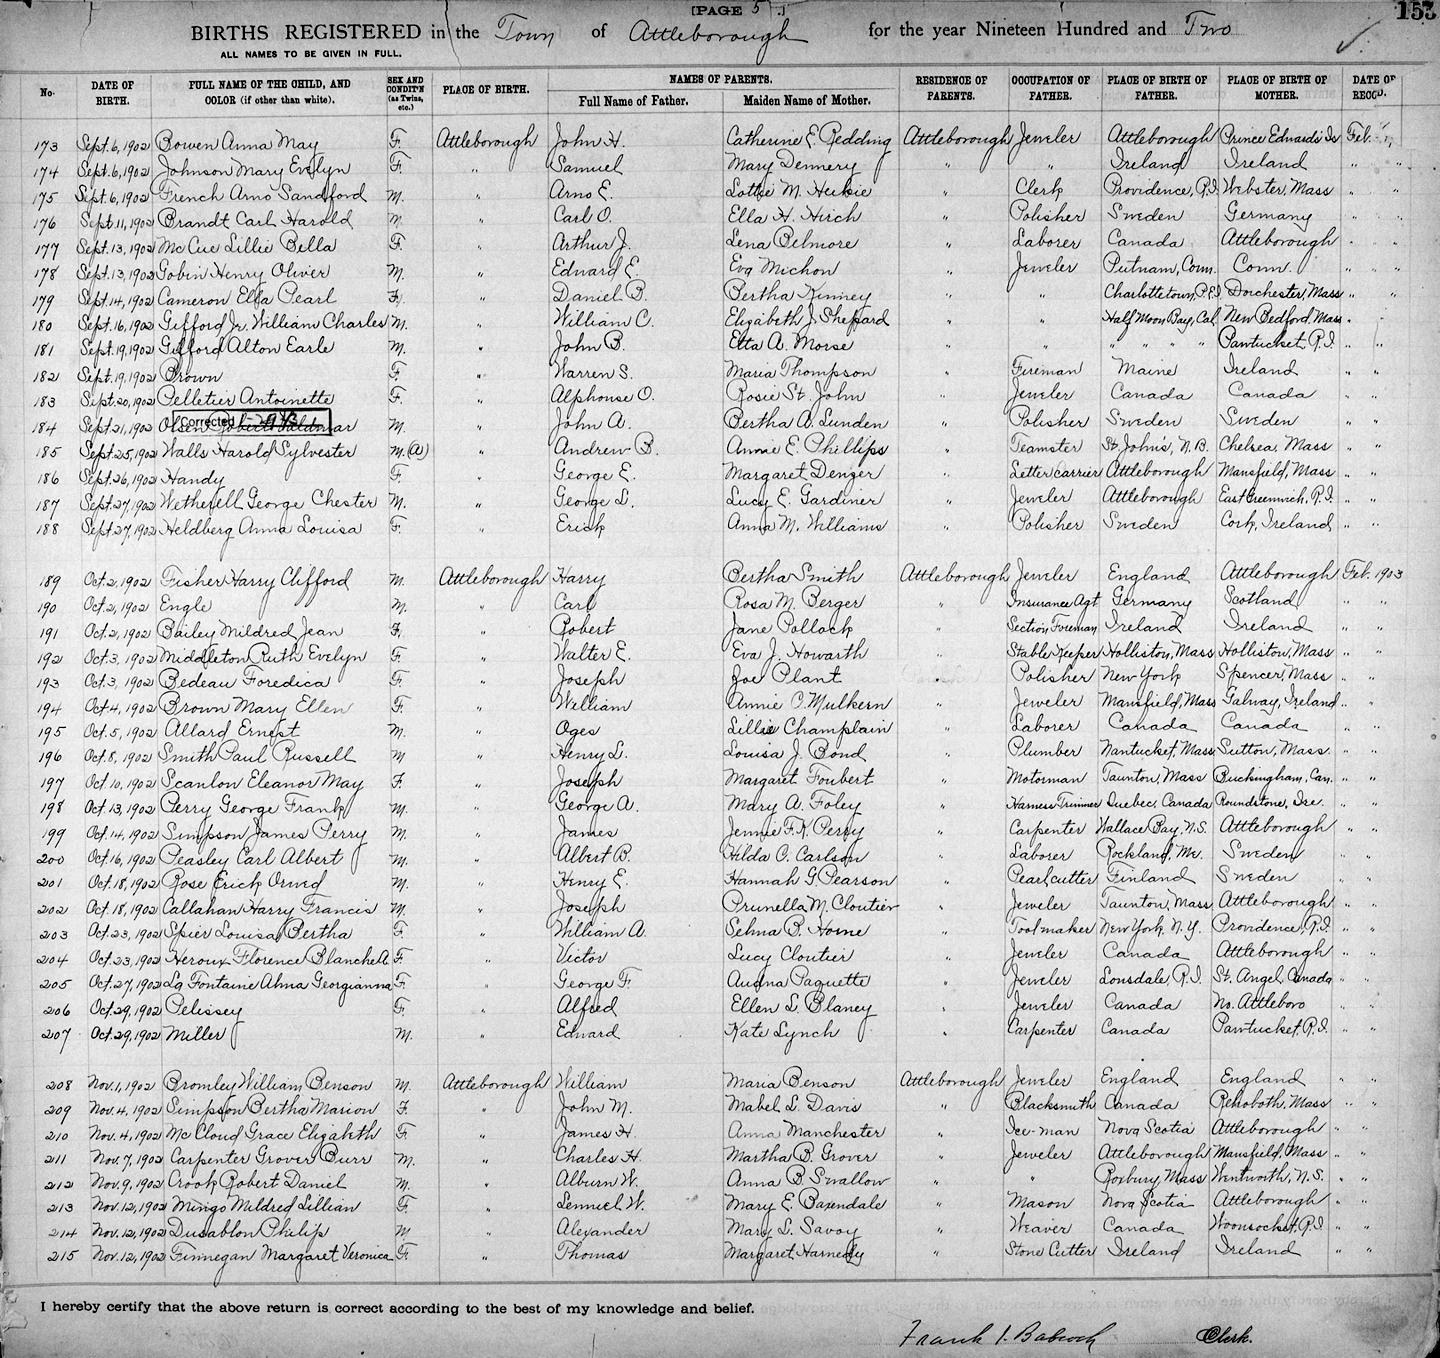 [PAGE 5 .] 153
BIRTHS REGISTERED in the Town of Attleborough for the year Nineteen Hundred and Two
ALL NAMES TO BE GIVEN IN FULL.
No. DATE OF BIRTH. FULL NAME OF THE CHILD, AND COLOR (if other than white). SEX AND CONDIT'N (as Twins, etc.) PLACE OF BIRTH. NAMES OF PARENTS. Full Name of Father. Maiden Name of Mother. RESIDENCE OF PARENTS. OCCUPATION OF FATHER. PLACE OF BIRTH OF FATHER. PLACE OF BIRTH OF MOTHER. DATE OF RECO'D.
173 Sept. 6, 1902 Bowen Anna May F. Attleborough John H. Catherine E. Redding Attleborough Jeweler Attleborough Prince Edward's Is Feb.
174 Sept. 6, 1902 Johnson Mary Evelyn F. " Samuel Mary Dennery " " Ireland Ireland " "
175 Sept. 6, 1902 French Arno Sandford M. " Arno E. Lottie M. " Clerk Providence, R.I. Webster, Mass " "
176 Sept 11, 1902 Brandt Carl Harold M. " Carl O. Ella H. Hirch " Polisher Sweden Germany " "
177 Sept. 13, 1902 Mc Cue Lillie Bella F. " Arthur J. Lena Belmore " Laborer Canada Attleborough " "
178 Sept. 13, 1902 Gobin Henry Oliver M. " Edward E. Eva Michon " Jeweler Putnam, Conn. Conn. " "
179 Sept. 14, 1902 Cameron Ella Pearl F. " Daniel B. Bertha Kinney " " Charlottetown, P.E.I. Dorchester, Mass " "
180 Sept. 16, 1902 Gifford Jr. William Charles M. " William C. Elizabeth J. Sheppard " " Half Moon Bay, Cal. New Bedford, Mass " "
181 Sept. 19, 1902 Gifford Alton Earle M. " John B. Etta A. Morse " " " " " " Pawtucket, R.I. " "
182 Sept. 19, 1902 Brown F. " Warren S. Maria Thompson " Fireman Maine Ireland " "
183 Sept. 20, 1902 Pelletier Antoinette F. " Alphonse O. Rosie St. John " Jeweler Canada Canada " "
Corrected
184 Sept. 21, 1902 Olsen Robert Waldimar M. " John A. Bertha A. Lunden " Polisher Sweden Sweden " "
185 Sept. 25, 1902 Walls Harold Sylvester M. (a) " Andrew B. Annie E. Phillips " Teamster St. John's, N.B. Chelsea, Mass " "
186 Sept. 26, 1902 Handy F. " George E. Margaret Denzer " Letter carrier Attleborough Mansfield, Mass " "
187 Sept. 27, 1902 Wetherell George Chester M. " George L. Lucy E. Gardiner " Jeweler Attleborough East Greenwich, R.I. " "
188 Sept. 27, 1902 Heldberg Anna Louisa F. " Erick Anna M. Williams " Polisher Sweden Cork, Ireland " "
189 Oct. 2, 1902 Fisher Harry Clifford M. Attleborough Harry Bertha Smith Attleborough Jeweler England Attleborough Feb. 1903
190 Oct. 2, 1902 Engle M. " Carl Rosa M. Berger " Insurance Agt Germany Scotland " "
191 Oct. 2, 1902 Bailey Mildred Jean F. " Robert Jane Pollock " Section Foreman Ireland Ireland " "
192 Oct. 3, 1902 Middleton Ruth Evelyn F. " Walter E. Eva J. Howarth " Stable Keeper Holliston, Mass Holliston, Mass " "
193 Oct. 3, 1902 Bedeau Foredica F. " Joseph Zoe Plant " Polisher New York Spencer, Mass " "
194 Oct. 4, 1902 Brown Mary Ellen F. " William Annie C. Mulkern " Jeweler Mansfield, Mass Galway, Ireland " "
195 Oct. 5, 1902 Allard Ernest M. " Oges Lillie Champlain " Laborer Canada Canada " "
196 Oct. 8, 1902 Smith Paul Russell M " Henry L. Louisa J. Bond " Plumber Nantucket, Mass. Sutton, Mass. " "
197 Oct. 10, 1902 Scanlon Eleanor May F. " Joseph Margaret Foubert " Motorman Taunton, Mass Buckingham, Can. " "
198 Oct. 13, 1902 Perry George Frank M. " George A. Mary A. Foley " Harness Trimmer Quebec, Canada Roundstone, Ire. " "
199 Oct. 14, 1902 Simpson James Perry M. " James Jennie F. K. Perry " Carpenter Wallace Bay, N.S. Attleborough " "
200 Oct. 16, 1902 Peasley Carl Albert M. " Albert B. Hilda C. Carlson " Laborer Rockland, Me. Sweden " "
201 Oct. 18, 1902 Rose Erick Orned M. " Henry E. Hannah G. Pearson " Pearl cutter Finland Sweden " "
202 Oct. 18, 1902 Callahan Harry Francis M. " Joseph Prunella M. Cloutier " Jeweler Taunton, Mass. Attleborough " "
203 Oct. 23, 1902 Spier Louisa Bertha F. " William A. Selma B. Horne " Toolmaker New York, N.Y. Providence, R.I. " "
204 Oct. 23, 1902 Heroux Florence Blanche A F. " Victor Lucy Cloutier " Jeweler Canada Attleborough " "
205 Oct. 27, 1902 La Fontaine Alma Georgianna F. " George F. Paquette " Jeweler Lonsdale, R.I. St. Angel, Canada " "
206 Oct. 29, 1902 Pelissey F. " Alfred Ellen L. Blaney " Jeweler Canada No. Attleboro " "
207 Oct. 29, 1902 Miller M. " Edward Kate Lynch " Carpenter Canada Pawtucket, R.I. " "
208 Nov. 1, 1902 Bromley William Benson M. Attleborough William Maria Benson Attleborough Jeweler England England " "
209 Nov. 4, 1902 Simpson Bertha Marion F. " John M. Mabel L. Davis " Blacksmith Canada Rehoboth, Mass " "
210 Nov. 4, 1902 Mc Cloud Grace Elizabeth F. " James H. Anna Manchester " Ice-man Nova Scotia Attleborough " "
211 Nov. 7, 1902 Carpenter Grover Burr M. " Charles H. Martha B. Grover " Jeweler Attleborough Mansfield, Mass " "
212 Nov. 9, 1902 Crook Robert Daniel M. " Alburn W. Anna B Swallow " " Roxbury, Mass Wentworth, N.S. " "
213 Nov. 12, 1902 Mingo Mildred Lillian F. " Lemuel W. Mary E. Baxendale " Mason Nova Scotia Attleborough " "
214 Nov. 12, 1902 Dusablon Philip M " Alexander Mary L. Savoy " Weaver Canada Woonsocket, R.I " "
215 Nov. 12, 1902 Finnegan Margaret Veronica F. " Thomas Margaret Harnedy " Stone Cutter Ireland Ireland " "
I hereby certify that the above return is correct according to the best of my knowledge and belief.
Frank I. Babcock Clerk.